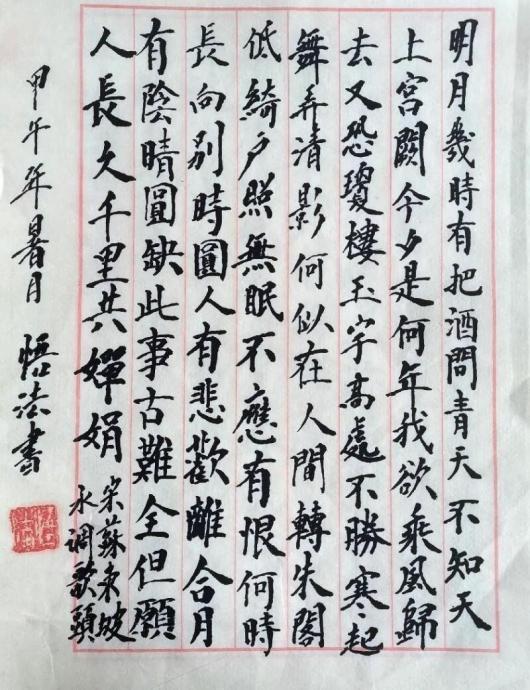 明月幾時有把酒問青天不知天
上宮闕今夕是何年我欲乘風歸
去又恐瓊樓玉宇高處不勝寒起
舞弄清影何似在人間轉朱閣
低綺戶照無眠不應有恨何時
長向別時圓人有悲歡離合月
有陰晴圓缺此事古難全但願
人長久千里共嬋娟
宋蘇東坡
水调歌頭
甲午年暑月 悟法書